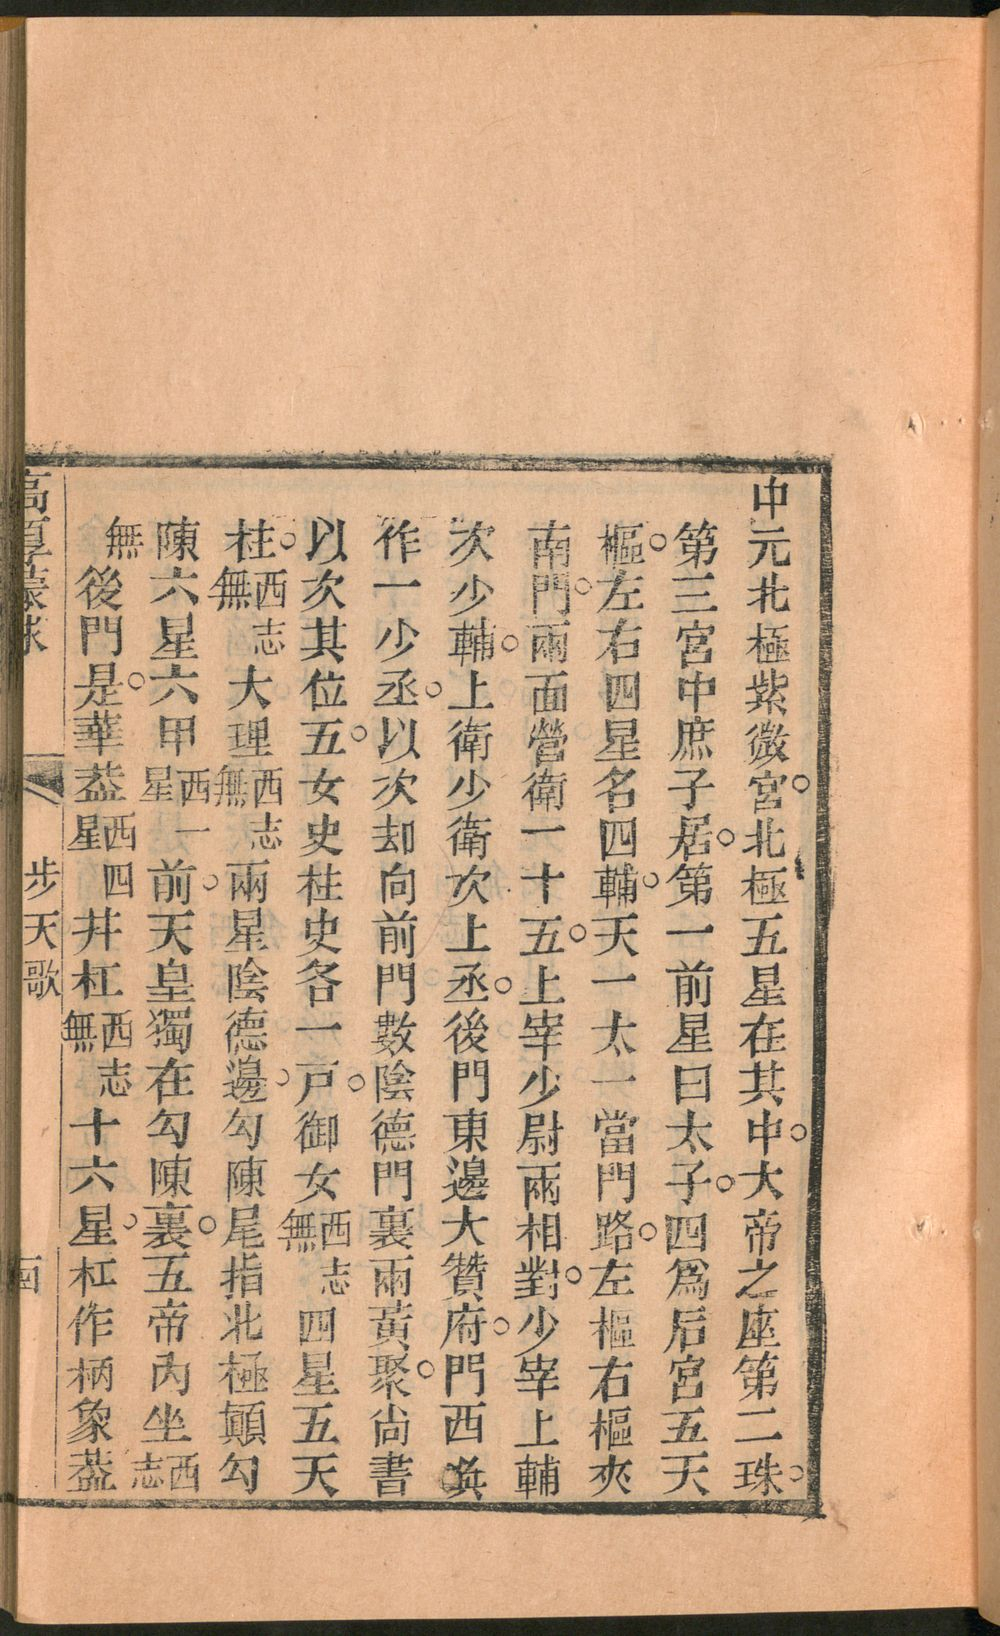 中元北極紫微宮○北極五星在其中○大帝之座第二珠○
第三宮中庶子居○第一前星曰太子○四爲后宮五天
樞○左右四星名四輔○天一太一當門路○左樞右樞夾
南門○兩面營衛一十五○上宰少尉兩相對○少宰上輔
次少輔○上衛少衛次上丞○後門東邊大贊府○門西喚
作一少丞○以次却向前門數陰德門裏兩黃聚○尚書
以次其位五○女史柱史各一戸○御女西志無四星五天
柱○西志無大理西志無兩星陰德邊○勾陳尾指北極顛勾
陳六星六甲西一星前○天皇獨在勾陳裏○五帝內坐西志
無後門是○華葢西四星井杠西志無十六星○杠作柄象葢
高厚蒙求
步天歌